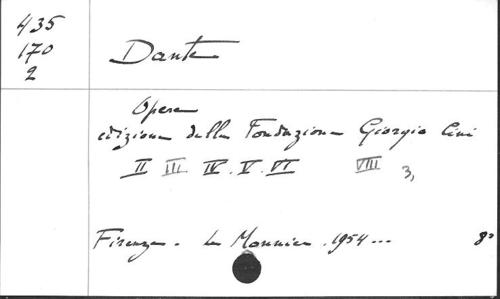 435
170
2
Dante
Opere
edizione della Fondazione Giorgio Cini
II III. IV. V. VI VIII 3,
Firenze - Le Monnier. 1954... 8°